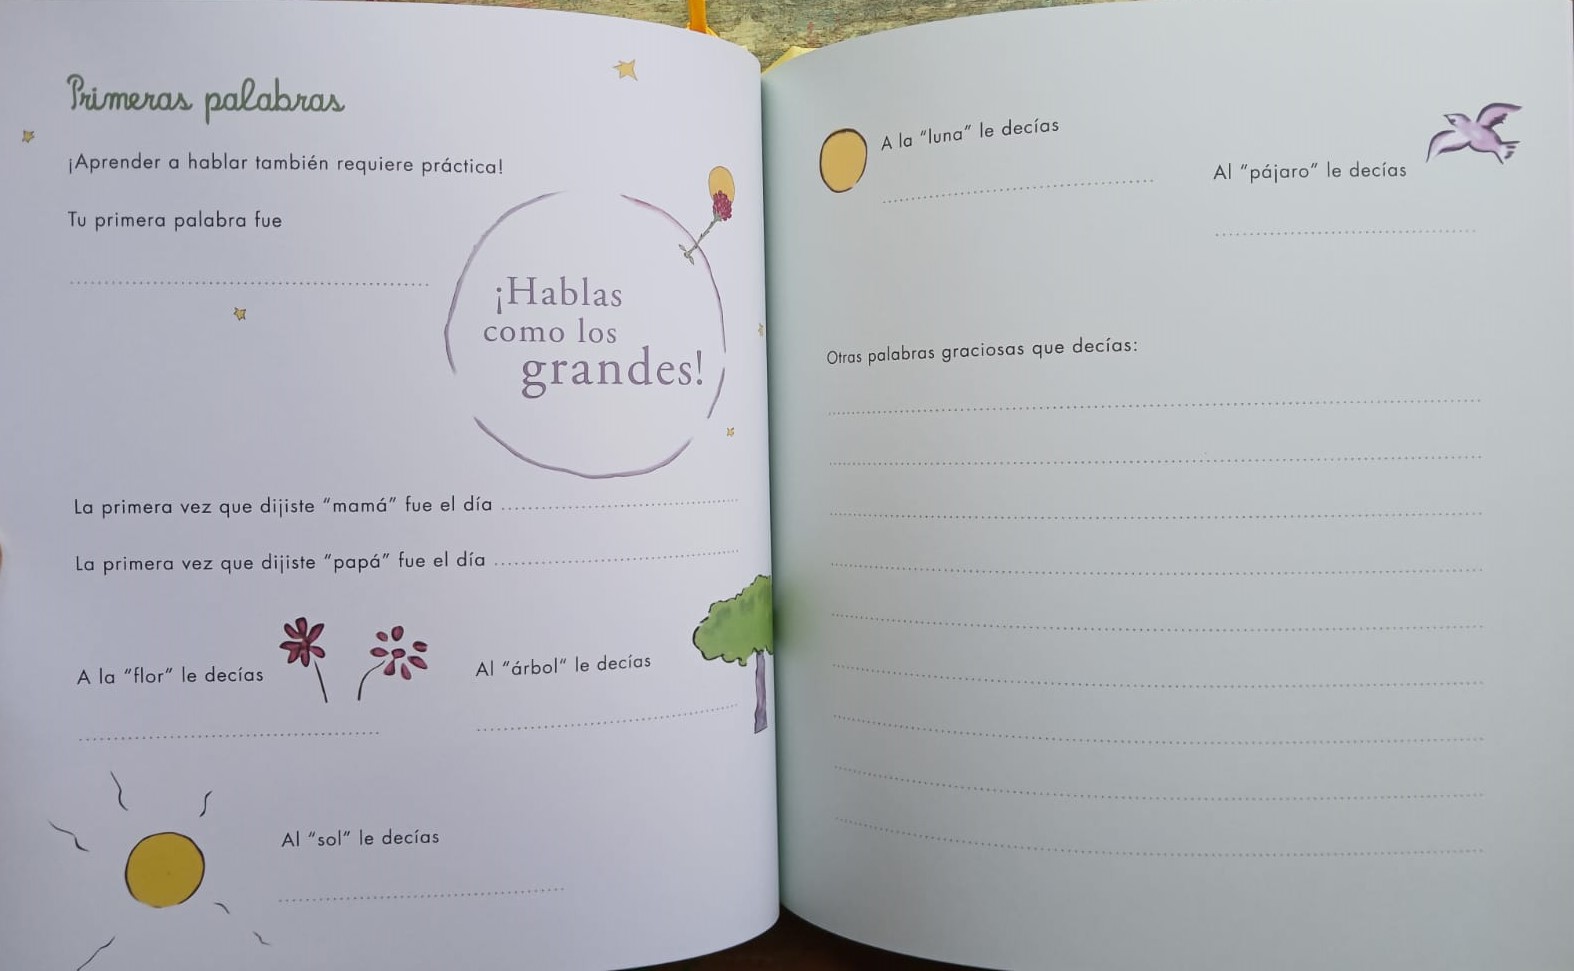 Primeras palabras
¡Aprender a hablar también requiere práctica!
Tu primera palabra fue
¡Hablas
como los
grandes!
La primera vez que dijiste “mamá” fue el día
La primera vez que dijiste “papá” fue el día
A la “flor” le decías
Al “árbol” le decías
Al “sol” le decías
A la “luna” le decías
Al “pájaro” le decías
Otras palabras graciosas que decías: